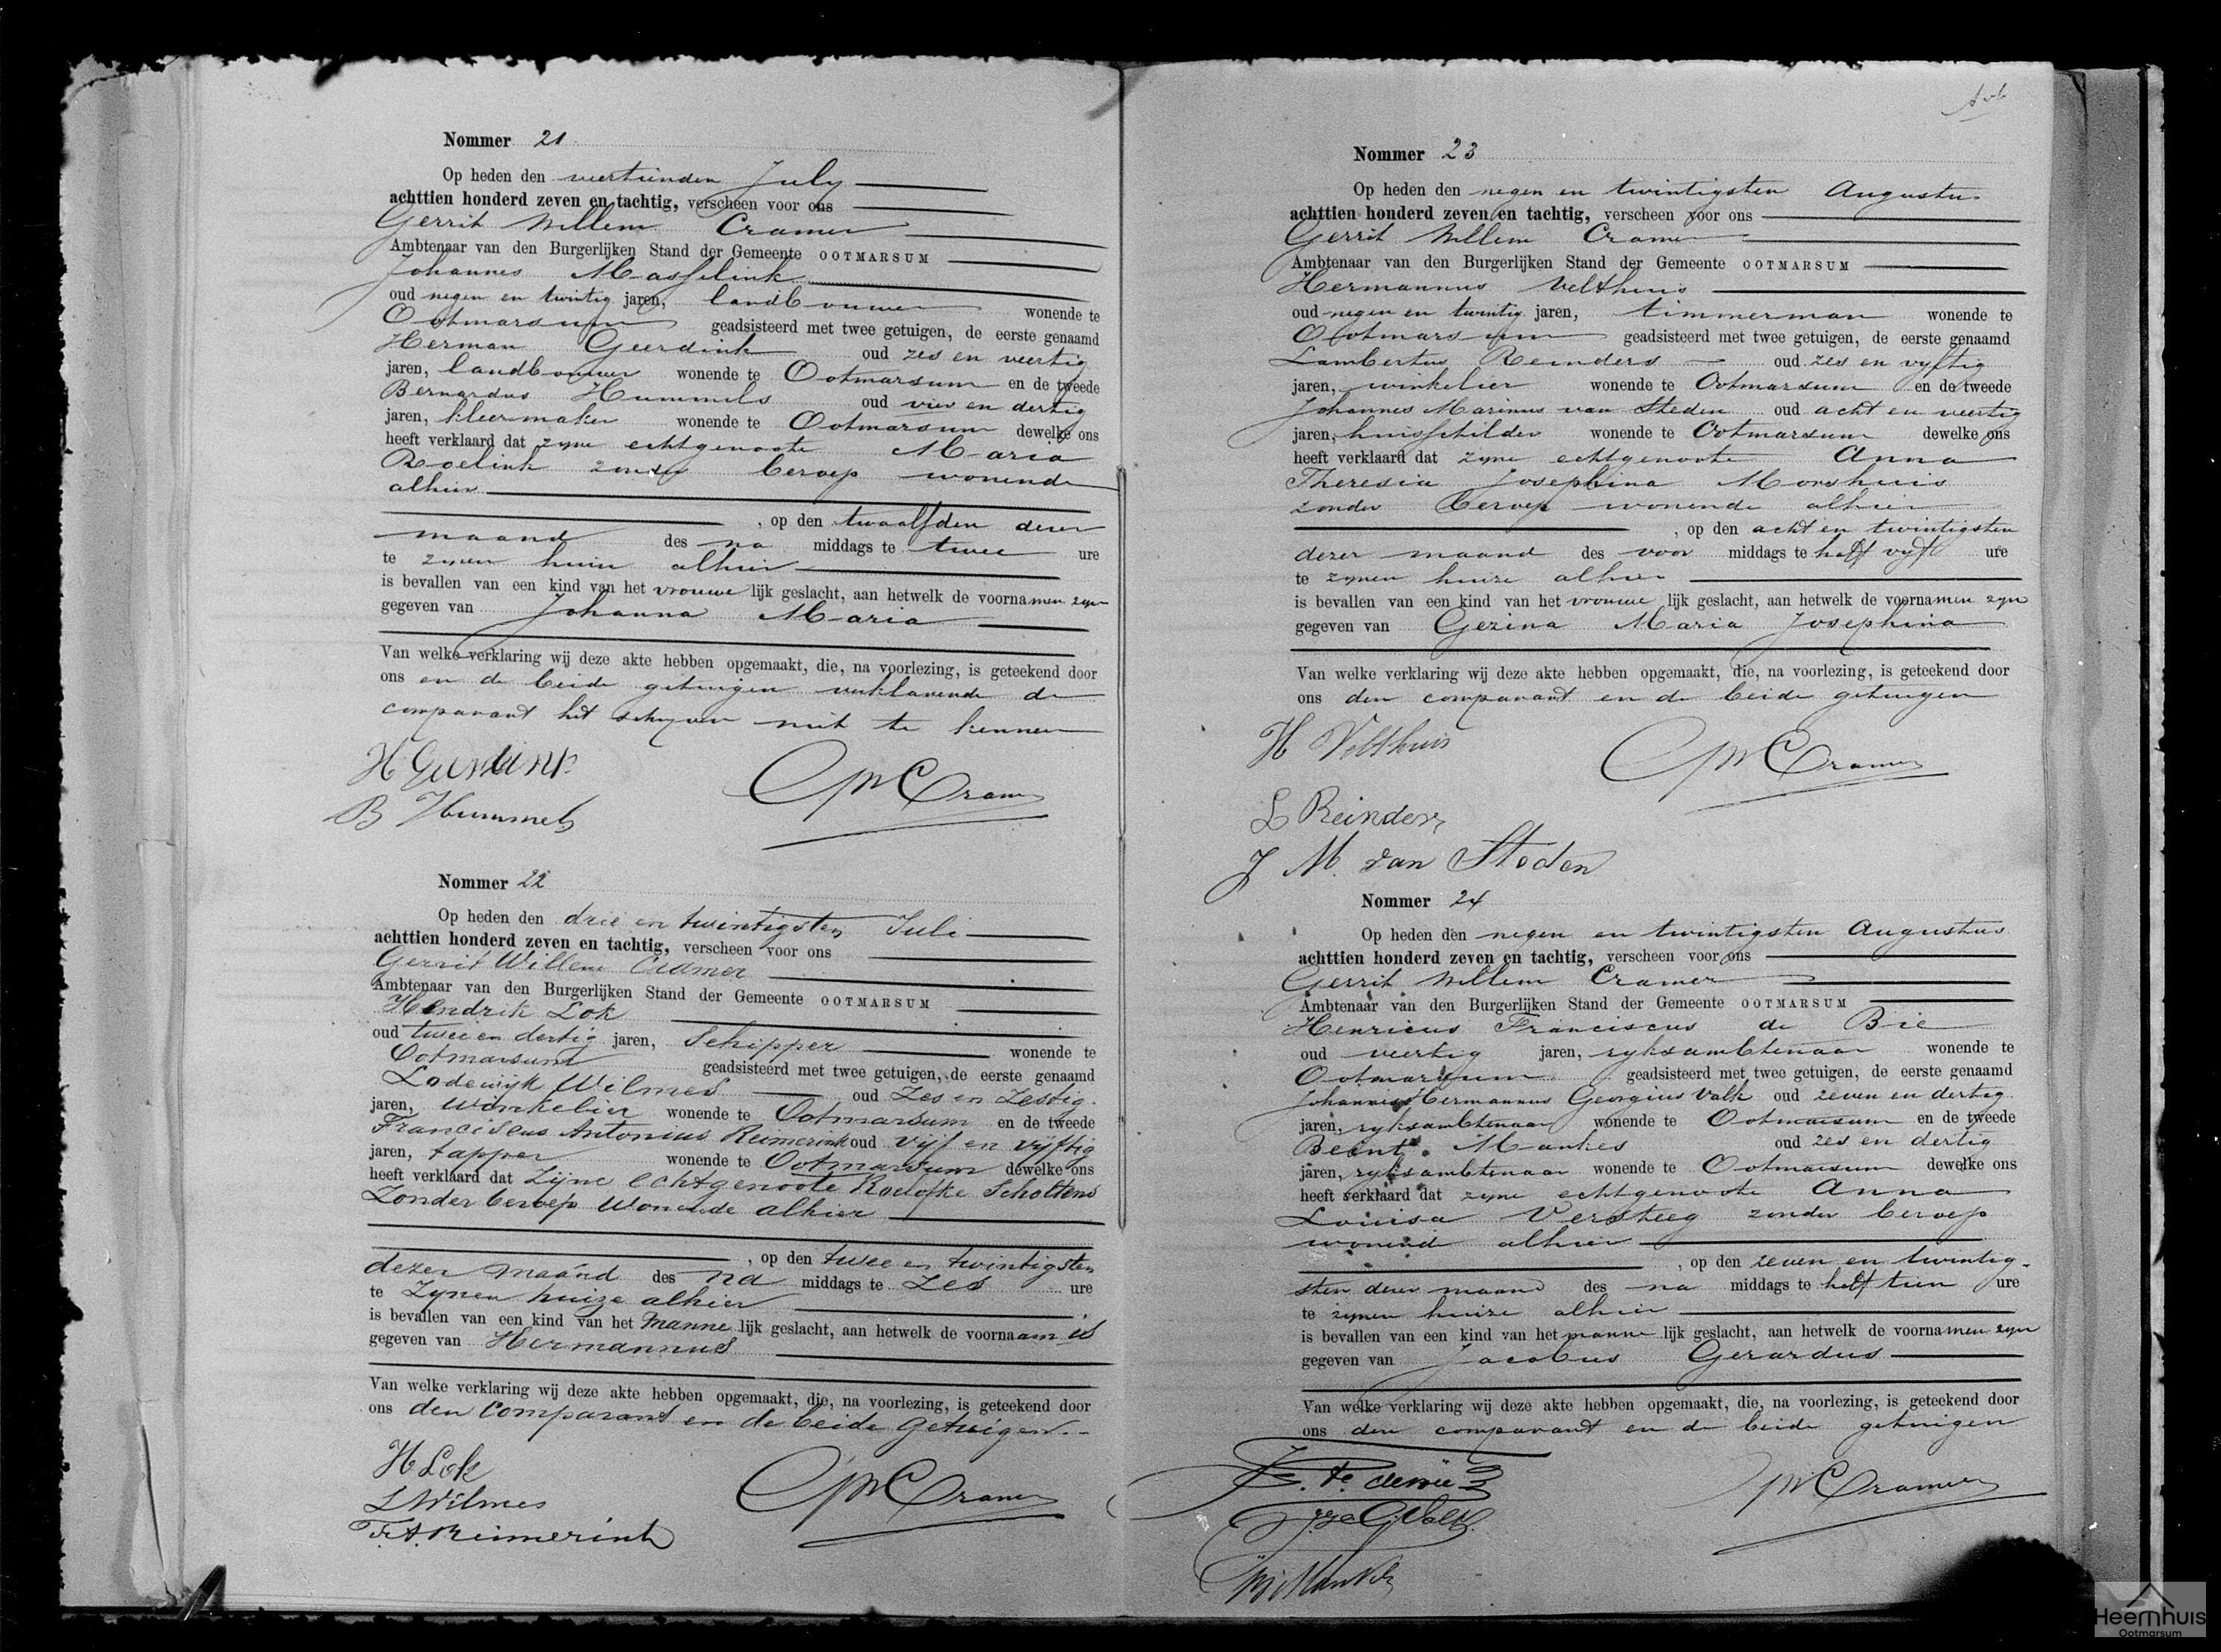 Nommer 21
Op heden den veertienden July
achttien honderd zeven en tachtig, verscheen voor ons
Gerrit Willem Cramer
Ambtenaar van den Burgerlijken Stand der Gemeente OOTMARSUM
Johannes Masselink
oud negen en twintig jaren, landbouwer wonende te
Ootmarsum geadsisteerd met twee getuigen, de eerste genaamd
Herman Geerdink oud zes en veertig
jaren, landbouwer wonende te Ootmarsum en de tweede
Bernardus Hummels oud vier en dertig
jaren, kleermaker wonende te Ootmarsum dewelke ons
heeft verklaard dat zyne echtgenoote Maria
Roelink zonder beroep wonende
alhier
, op den twaalfden dezer
maand des na middags te twee ure
te zynen huize alhier
is bevallen van een kind van het vrouwe lijk geslacht, aan hetwelk de voornamen zyn
gegeven van Johanna Maria
Van welke verklaring wij deze akte hebben opgemaakt, die, na voorlezing, is geteekend door
ons en de beide getuigen verklarende de
comparant het schryven niet te kennen
H Geerdink
GW Cramer
B Hummels
Nommer 22
Op heden den drie en twintigsten Juli
achttien honderd zeven en tachtig, verscheen voor ons
Gerrit Willem Cramer
Ambtenaar van den Burgerlijken Stand der Gemeente OOTMARSUM
Hendrik Lok
oud twee en dertig jaren, Schipper wonende te
Ootmarsum geadsisteerd met twee getuigen, de eerste genaamd
Lodewyk Wilmes oud Zes en Zestig
jaren, Winkelier wonende te Ootmarsum en de tweede
Franciscus Antonius Reimerink oud Vyf en Vyftig
jaren, tapper wonende te Ootmarsum dewelke ons
heeft verklaard dat Zijne echtgenoote Roelofke Scholtens
Zonder beroep Wonende alhier
, op den twee en twintigsten
dezer maand des na middags te Zes ure
te Zynen huize alhier
is bevallen van een kind van het Manne lijk geslacht, aan hetwelk de voornaam is
gegeven van Hermannus
Van welke verklaring wij deze akte hebben opgemaakt, die, na voorlezing, is geteekend door
ons den Comparant en de beide Getuigen.
H Lok
L Wilmes
GW Cramer
F.A. Reimerink
Nommer 23
Op heden den negen en twintigsten Augustus
achttien honderd zeven en tachtig, verscheen voor ons
Gerrit Willem Cramer
Ambtenaar van den Burgerlijken Stand der Gemeente OOTMARSUM
Hermannus Velthuis
oud negen en twintig jaren, timmerman wonende te
Ootmarsum geadsisteerd met twee getuigen, de eerste genaamd
Lambertus Reinders oud zes en vyftig
jaren, winkelier wonende te Ootmarsum en de tweede
Johannes Marinus van Steden oud acht en veertig
jaren, huisschilder wonende te Ootmarsum dewelke ons
heeft verklaard dat zyne echtgenoote Anna
Theresia Josephina Morshuis
zonder beroep wonende alhier
, op den acht en twintigsten
dezer maand des voor middags te half vyf ure
te zynen huize alhier
is bevallen van een kind van het vrouwe lijk geslacht, aan hetwelk de voornamen zyn
gegeven van Gezina Maria Josephina
Van welke verklaring wij deze akte hebben opgemaakt, die, na voorlezing, is geteekend door
ons den comparant en de beide getuigen
H Velthuis
GW Cramer
L Reinders
J M. van Steden
Nommer 24
Op heden den negen en twintigsten Augustus
achttien honderd zeven en tachtig, verscheen voor ons
Gerrit Willem Cramer
Ambtenaar van den Burgerlijken Stand der Gemeente OOTMARSUM
Henricus Franciscus de Bie
oud veertig jaren, ryksambtenaar wonende te
Ootmarsum geadsisteerd met twee getuigen, de eerste genaamd
Johannes Hermannus Georgius Valk oud zeven en dertig
jaren, ryksambtenaar wonende te Ootmarsum en de tweede
Beent Mankes oud zes en dertig
jaren, ryksambtenaar wonende te Ootmarsum dewelke ons
heeft verklaard dat zyne echtgenoote Anna
Louisa Versteeg zonder beroep
wonende alhier
, op den zeven en twintig-
sten dezer maand des na middags te half tien ure
te zynen huize alhier
is bevallen van een kind van het manne lijk geslacht, aan hetwelk de voornamen zyn
gegeven van Jacobus Gerardus
Van welke verklaring wij deze akte hebben opgemaakt, die, na voorlezing, is geteekend door
ons den comparant en de beide getuigen
GW Cramer
Heernhuis
Ootmarsum